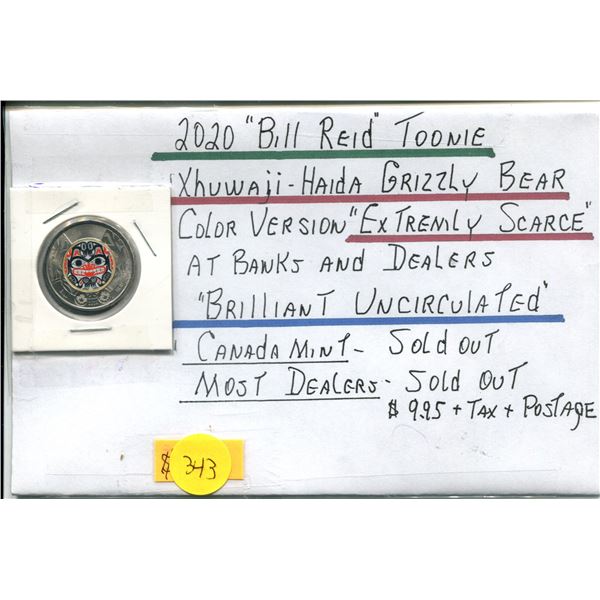 2020 "Bill Reid" Toonie
Xhuwaji-Haida Grizzly Bear
Color Version "Extremily Scarce"
At Banks and Dealers
"Brilliant Uncirculated"
Canada Mint - Sold out
Most Dealers - Sold Out
$9.95 + Tax + Postage
$ 343